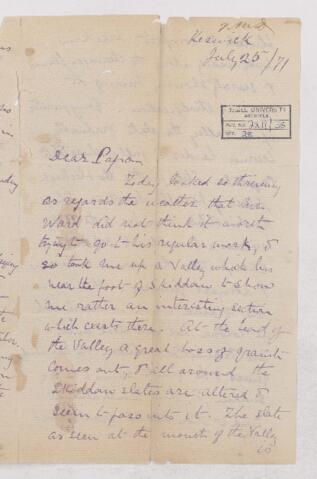 Keswick
July 25/71
McGILL UNIVERSITY
ARCHIVES
ACC. NO.
REF.
Dear Papa
Today looked so threatening
as regards the weather that
Ward did not think it worth
trying to go to his regular work, &
so took me up a Valley which lies
near the foot of Skiddaw to show
me rather an interesting section
which exists there. At the head of
the Valley a great boss of granite
comes out, & all around the
Skiddaw slates are altered &
seem to pass into it. The slate
as seen at the mouth of the Valley
is